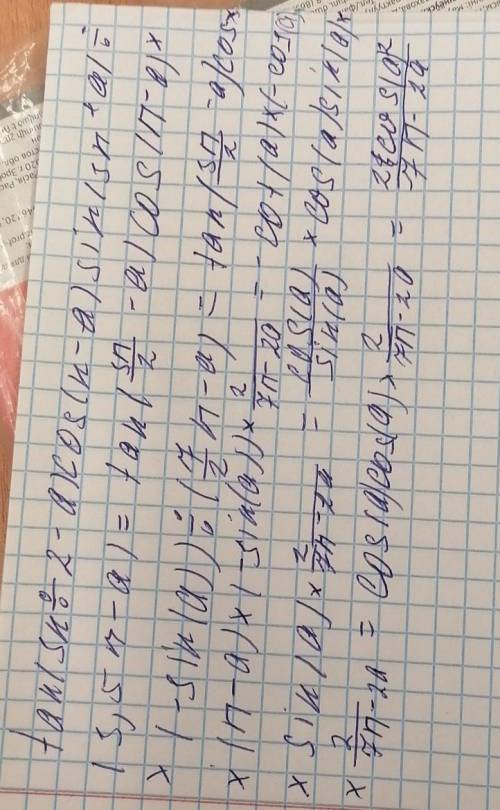 tan(5π÷2 - a)cos(π-a)sin(5π+a)÷
(3,5π-a) = tan(5π/2 - a)cos(π-a)×
×(-sin(a))÷(7/2π-a) = tan(5π/2 - a)cos×
×(π-a)×(-sin(a))×2/7π-2a = -cot(a)×(-cos(a))
×sin(a)×2/7π-2a = cos(a)/sin(a)×cos(a)sin(a)×
×2/7π-2a = cos(a)cos(a)×2/7π-2a = 2cos(a)²/7π-2a